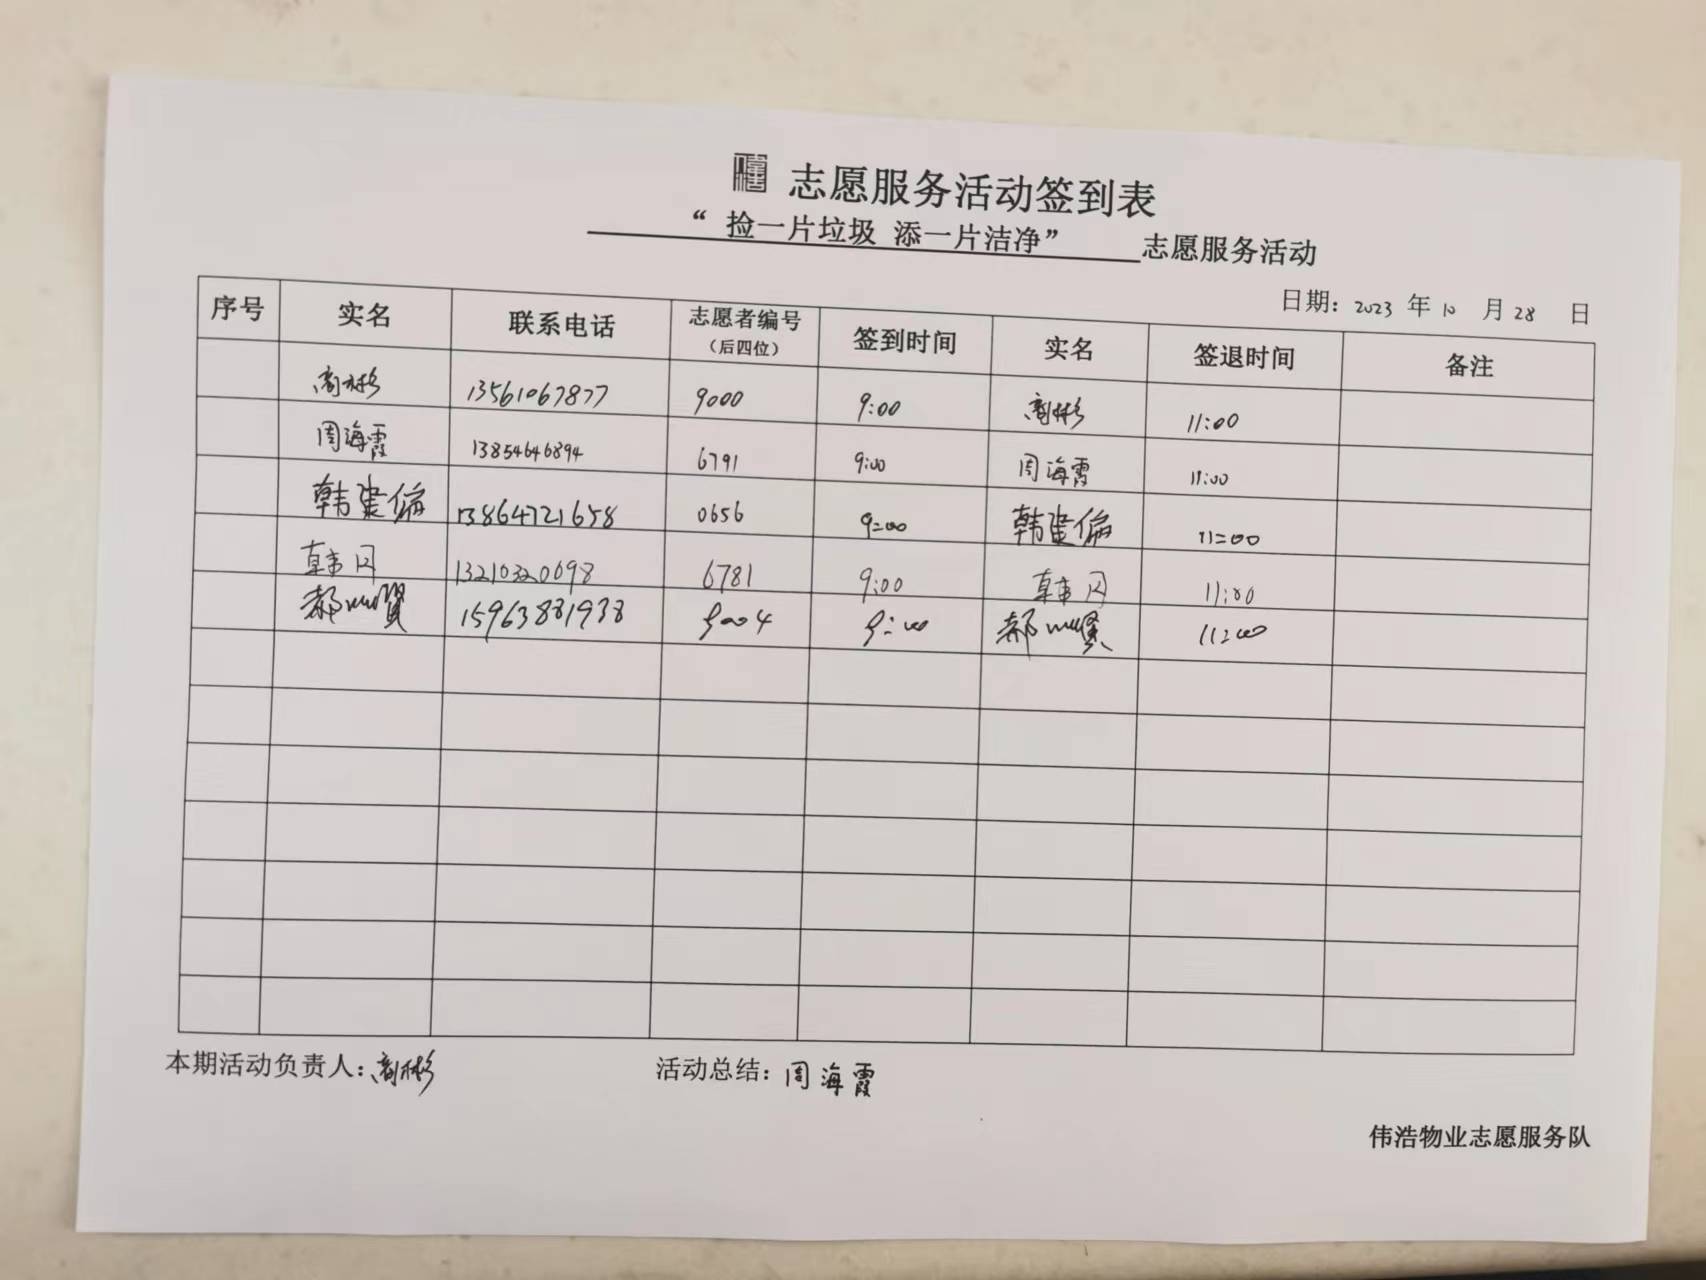 志愿服务活动签到表
“ 捡一片垃圾 添一片洁净” 志愿服务活动
日期：2023 年 10 月 28 日
序号 实名 联系电话 志愿者编号（后四位） 签到时间 实名 签退时间 备注
商彬 13561067877 9000 9:00 商彬 11:00
周海霞 13854646894 6791 9:00 周海霞 11:00
韩建偏 13864721658 0656 9:00 韩建偏 11:00
13210320698 6781 9:00 11:00
15963881938 9004 9:00 11:00
本期活动负责人：商彬 活动总结：周海霞
伟浩物业志愿服务队